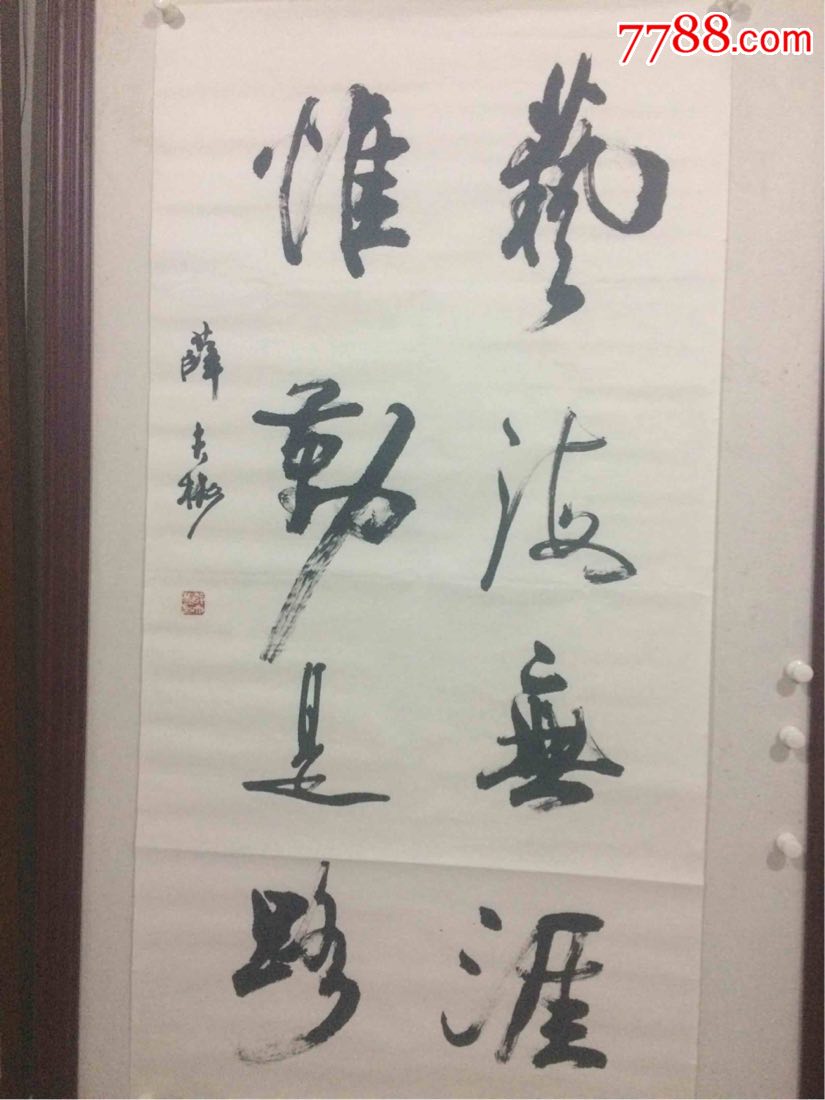 7788.com
藝海無涯
惟勤是路
薛夫彬